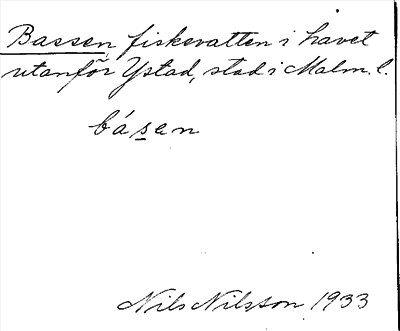 Bassen, fiskevatten i havet
utanför Ystad, stad i Malm. l.
básen
Nils Nilsson 1933